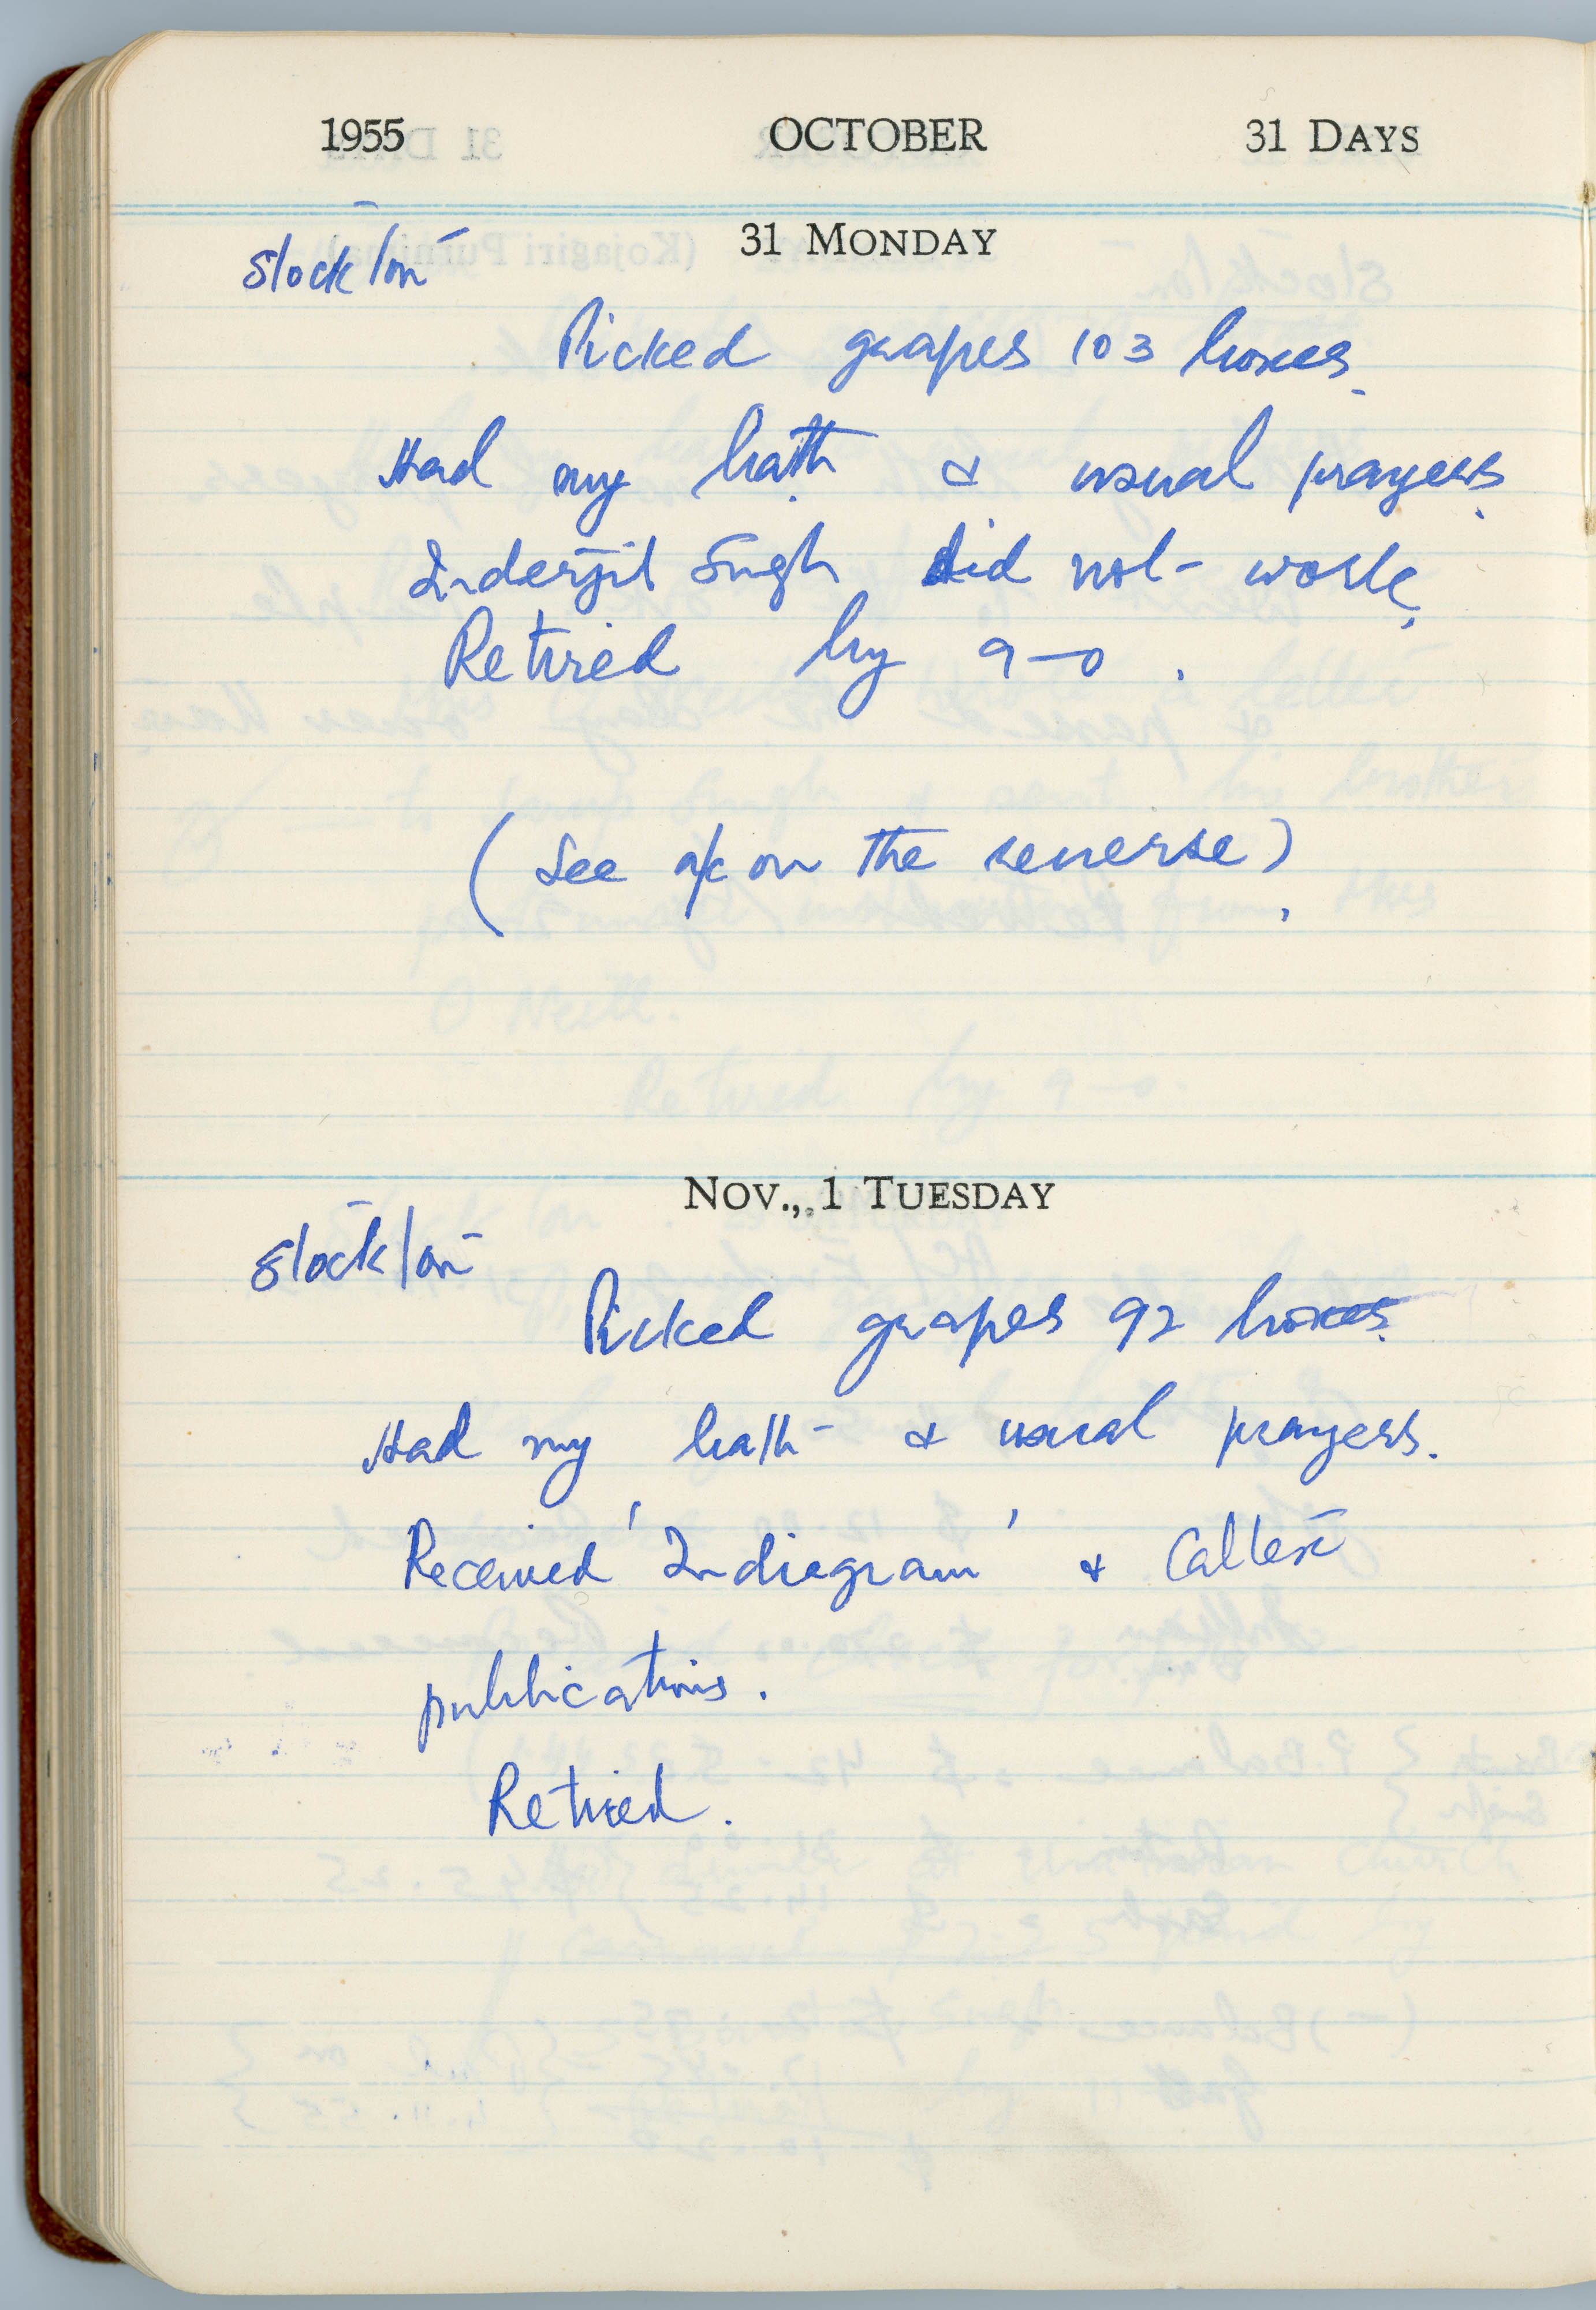 1955 OCTOBER 31 DAYS
31 MONDAY
Stockton
Picked grapes 103 boxes.
Had my bath & usual prayers.
Inderjit Singh did not work.
Retired by 9-0.
(See a/c on the reverse).
NOV., 1 TUESDAY
Stockton
Picked grapes 92 boxes.
Had my bath & usual prayers.
Received 'Indiagram' & Caltex
publications.
Retired.